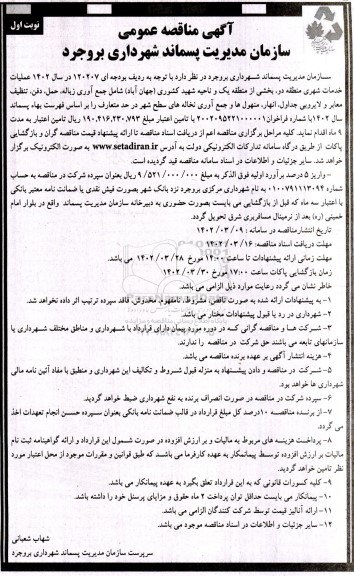 نوبت اول
آگهی مناقصه عمومی
سازمان مدیریت پسماند شهرداری بروجرد
سازمان مدیریت پسماند شهرداری بروجرد در نظر دارد با توجه به ردیف بودجه ای ۱۲۰۲۰۷ در سال ۱۴۰۲ عملیات
خدمات شهری منطقه دو، بخشی از منطقه یک و ناحیه شهید کشوری (جهان آباد) شامل جمع آوری زباله، حمل، دفن، تنظیف
معابر و لایروبی جداول، انهار، منهول ها و جمع آوری نخاله های سطح شهر در حد متعارف را بر اساس فهرست بهاء پسماند
سال ۱۴۰۲ با شماره فراخوان ۲۰۰۲۰۹۵۲۲۱۰۰۰۰۰۱ با تامین اعتبار مبلغ ۱۹۰.۴۱۶.۲۳۰.۷۹۳ ریال تامین اعتبار به مدت
۹ ماه اقدام نماید. کلیه مراحل برگزاری مناقصه اعم از دریافت اسناد مناقصه تا ارائه پیشنهاد قیمت مناقصه گران و بازگشایی
پاکات از طریق درگاه سامانه تدارکات الکترونیکی دولت به آدرس www.setadiran.ir به صورت الکترونیک برگزار
خواهد شد. سایر جزئیات و اطلاعات در اسناد سامانه مناقصه قید گردیده است.
- واریز ۵ درصد برآورد اولیه فوق الذکر به مبلغ ۹/۵۲۱/۰۰۰/۰۰۰ ریال بعنوان سپرده شرکت در مناقصه به حساب
شماره ۰۱۰۰۷۹۱۱۱۳۰۹۴ به نام شهرداری مرکزی بروجرد نزد بانک شهر بصورت فیش نقدی یا ضمانت نامه معتبر بانکی
با اعتبار سه ماه که قبل از بازگشایی می بایست بصورت حضوری به دبیرخانه سازمان مدیریت پسماند واقع در بلوار امام
خمینی (ره) بعد از ترمینال مسافربری شرق تحویل گردد.
تاریخ انتشار مناقصه در سامانه: ۱۴۰۲/۰۳/۰۹
مهلت دریافت اسناد مناقصه: ۱۴۰۲/۰۳/۱۶
مهلت زمانی ارائه پیشنهادات تا ساعت ۱۴:۰۰ مورخ ۱۴۰۲/۰۳/۲۸ می باشد.
زمان بازگشایی پاکات ساعت ۱۷:۰۰ مورخ ۱۴۰۲/۰۳/۳۰
خاطر نشان می گردد رعایت موارد ذیل الزامی می باشد.
۱- به پیشنهادات ارائه شده به صورت ناقص، مشروط، نامفهوم، مخدوش، فاقد سپرده ترتیب اثر داده نخواهد شد.
۲- شهرداری در رد یا قبول پیشنهادات مختار می باشد.
۳- شرکت ها و مناقصه گرانی که در دوره مورد پیمان دارای قرارداد با شهرداری و مناطق مختلف شهرداری یا
سازمانهای تابعه می باشند حق شرکت در مناقصه را ندارند.
۴- هزینه انتشار آگهی بر عهده برنده مناقصه می باشد.
۵- شرکت در مناقصه و دادن پیشنهاد به منزله قبول شروط و تکالیف این شهرداری و منطبق با مفاد آئین نامه مالی
شهرداری ها خواهد بود.
۶- سپرده شرکت در مناقصه در صورت انصراف برنده به نفع شهرداری ضبط خواهد گردید.
۷- از برنده مناقصه ۱۰درصد کل مبلغ قرارداد در قالب ضمانت نامه بانکی بعنوان سپرده حسن انجام تعهدات اخذ
می گردد.
۸- پرداخت هزینه های مربوط به مالیات و بر ارزش افزوده در صورت شمول این قرارداد و ارائه گواهینامه ثبت نام
مالیات بر ارزش افزوده توسط پیمانکار به عهده کارفرما می باشد که طبق قوانین و مقررات موجود از محل اعتبار مورد
نظر تامین خواهد گردید.
۹- کلیه کسورات قانونی که به این قرارداد تعلق بگیرد به عهده پیمانکار می باشد.
۱۰- پیمانکار می بایست حداقل توان پرداخت ۲ ماه حقوق و مزایای پرسنل خود را داشته باشد.
۱۱- ارائه آنالیز قیمت توسط شرکت کنندگان الزامی می باشد.
۱۲- سایر جزئیات و اطلاعات در اسناد مناقصه موجود می باشد.
شهاب شعبانی
سرپرست سازمان مدیریت پسماند شهرداری بروجرد